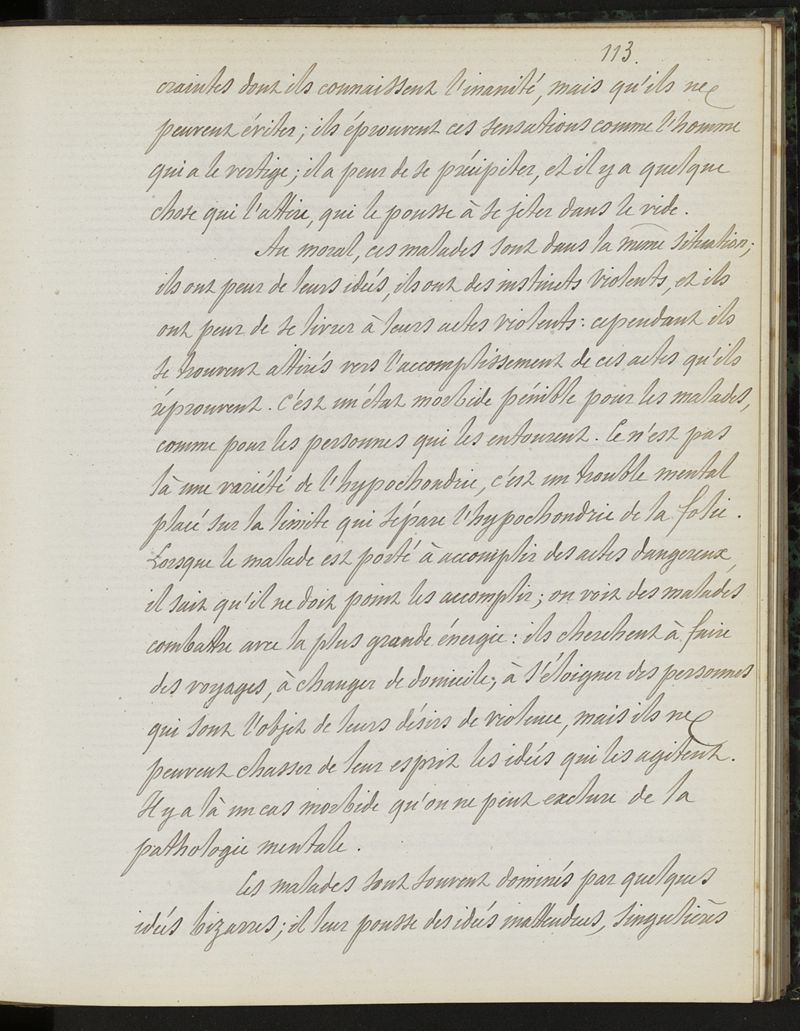 113.
craintes dont ils connaissent l'inanité, mais qu'ils ne
peuvent éviter; ils éprouvent ces sensations comme l'homme
qui a le vertige; il a peur de se précipiter, et il y a quelque
chose qui l'attire, qui le pousse à se jeter dans le vide.
Au moral, ces malades sont dans la même situation;
ils ont peur de leurs idées, ils ont des instincts violents, et ils
ont peur de se livrer à leurs actes violents: cependant ils
se trouvent attirés vers l'accomplissement de ces actes qu'ils
réprouvent. C'est un état morbide pénible pour les malades,
comme pour les personnes qui les entourent. Ce n'est pas
là une variété de l'hypochondrie, c'est un trouble mental
placé sur la limite qui sépare l'hypochondrie de la folie.
Lorsque le malade est porté à accomplir des actes dangereux,
il sait qu'il ne doit point les accomplir; on voit des malades
combattre avec la plus grande énergie: ils cherchent à faire
des voyages, à changer de domicile, à s'éloigner des personnes
qui sont l'objet de leurs désirs de violence, mais ils ne
peuvent chasser de leur esprit les idées qui les agitent.
Il y a là un cas morbide qu'on ne peut exclure de la
pathologie mentale.
Ces malades sont souvent dominés par quelques
idées bizarres; il leur pousse des idées inattendues, singulières